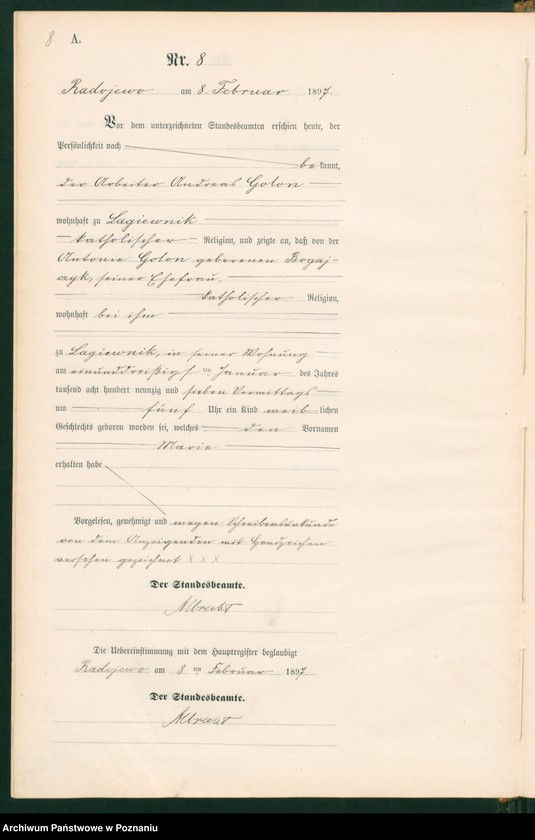 8 A.
Nr. 8
Radojewo am 8. Februar 1897
Vor dem unterzeichneten Standesbeamten erschien heute, der
Persönlichkeit nach
bekannt,
der Arbeiter Andreas Golon
wohnhaft zu Lagiewnik
katholischer Religion, und zeigte an, daß von der
Antonie Golon geborenen Bogaj-
czyk, seiner Ehefrau,
katholischer Religion,
wohnhaft bei ihm
zu Lagiewnik, in seiner Wohnung
am einunddreißigsten Januar des Jahres
tausend acht hundert neunzig und sieben Vormittags
um fünf Uhr ein Kind weiblichen
Geschlechts geboren worden sei, welches den Vornamen
Marie
erhalten habe
Vorgelesen, genehmigt und wegen Schreibensunkunde
von dem Anzeigenden mit Handzeichen
versehen gezeichnet X X X
Der Standesbeamte.
Albrecht
Die Uebereinstimmung mit dem Hauptregister beglaubigt
Radojewo am 8 ten Februar 1897
Der Standesbeamte.
Albrecht
Archiwum Państwowe w Poznaniu